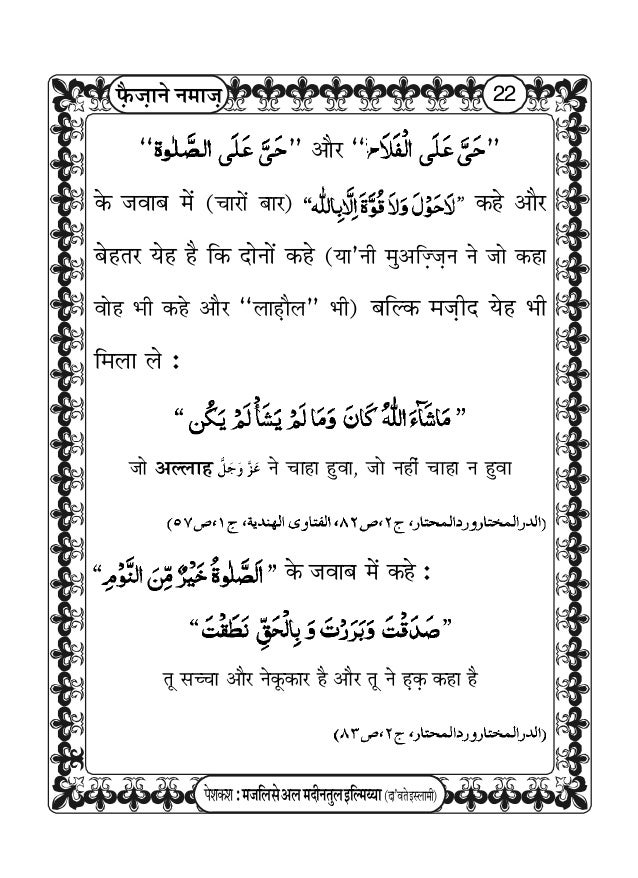 फ़ैज़ाने नमाज़
22
“حَیَّ عَلَی الصَّلٰوۃ” और “حَیَّ عَلَی الْفَلَاح”
के जवाब में (चारों बार) “لَاحَوْلَ وَلَا قُوَّۃَ اِلَّا بِاللّٰه” कहे और
बेहतर येह है कि दोनों कहे (या'नी मुअज़्ज़िन ने जो कहा
वोह भी कहे और “लाह़ौल” भी) बल्कि मज़ीद येह भी
मिला ले :
“مَاشَآءَ اللّٰهُ کَانَ وَمَا لَمْ یَشَأْ لَمْ یَکُن”
जो अल्लाह عَزَّوَجَلَّ ने चाहा हुवा, जो नहीं चाहा न हुवा
(الدرالمختاروردالمحتار، ج۲،ص۸۲، الفتاوی الھندیة، ج۱،ص۵۷)
“اَلصَّلٰوۃُ خَیْرٌ مِّنَ النَّوْمِ” के जवाब में कहे :
“صَدَقْتَ وَبَرَرْتَ وَ بِالْحَقِّ نَطَقْتَ”
तू सच्चा और नेकूकार है और तू ने ह़क़ कहा है
(الدرالمختاروردالمحتار، ج۲،ص۸۳)
पेशकश : मजलिसे अल मदीनतुल इल्मिय्या (दा'वते इस्लामी)